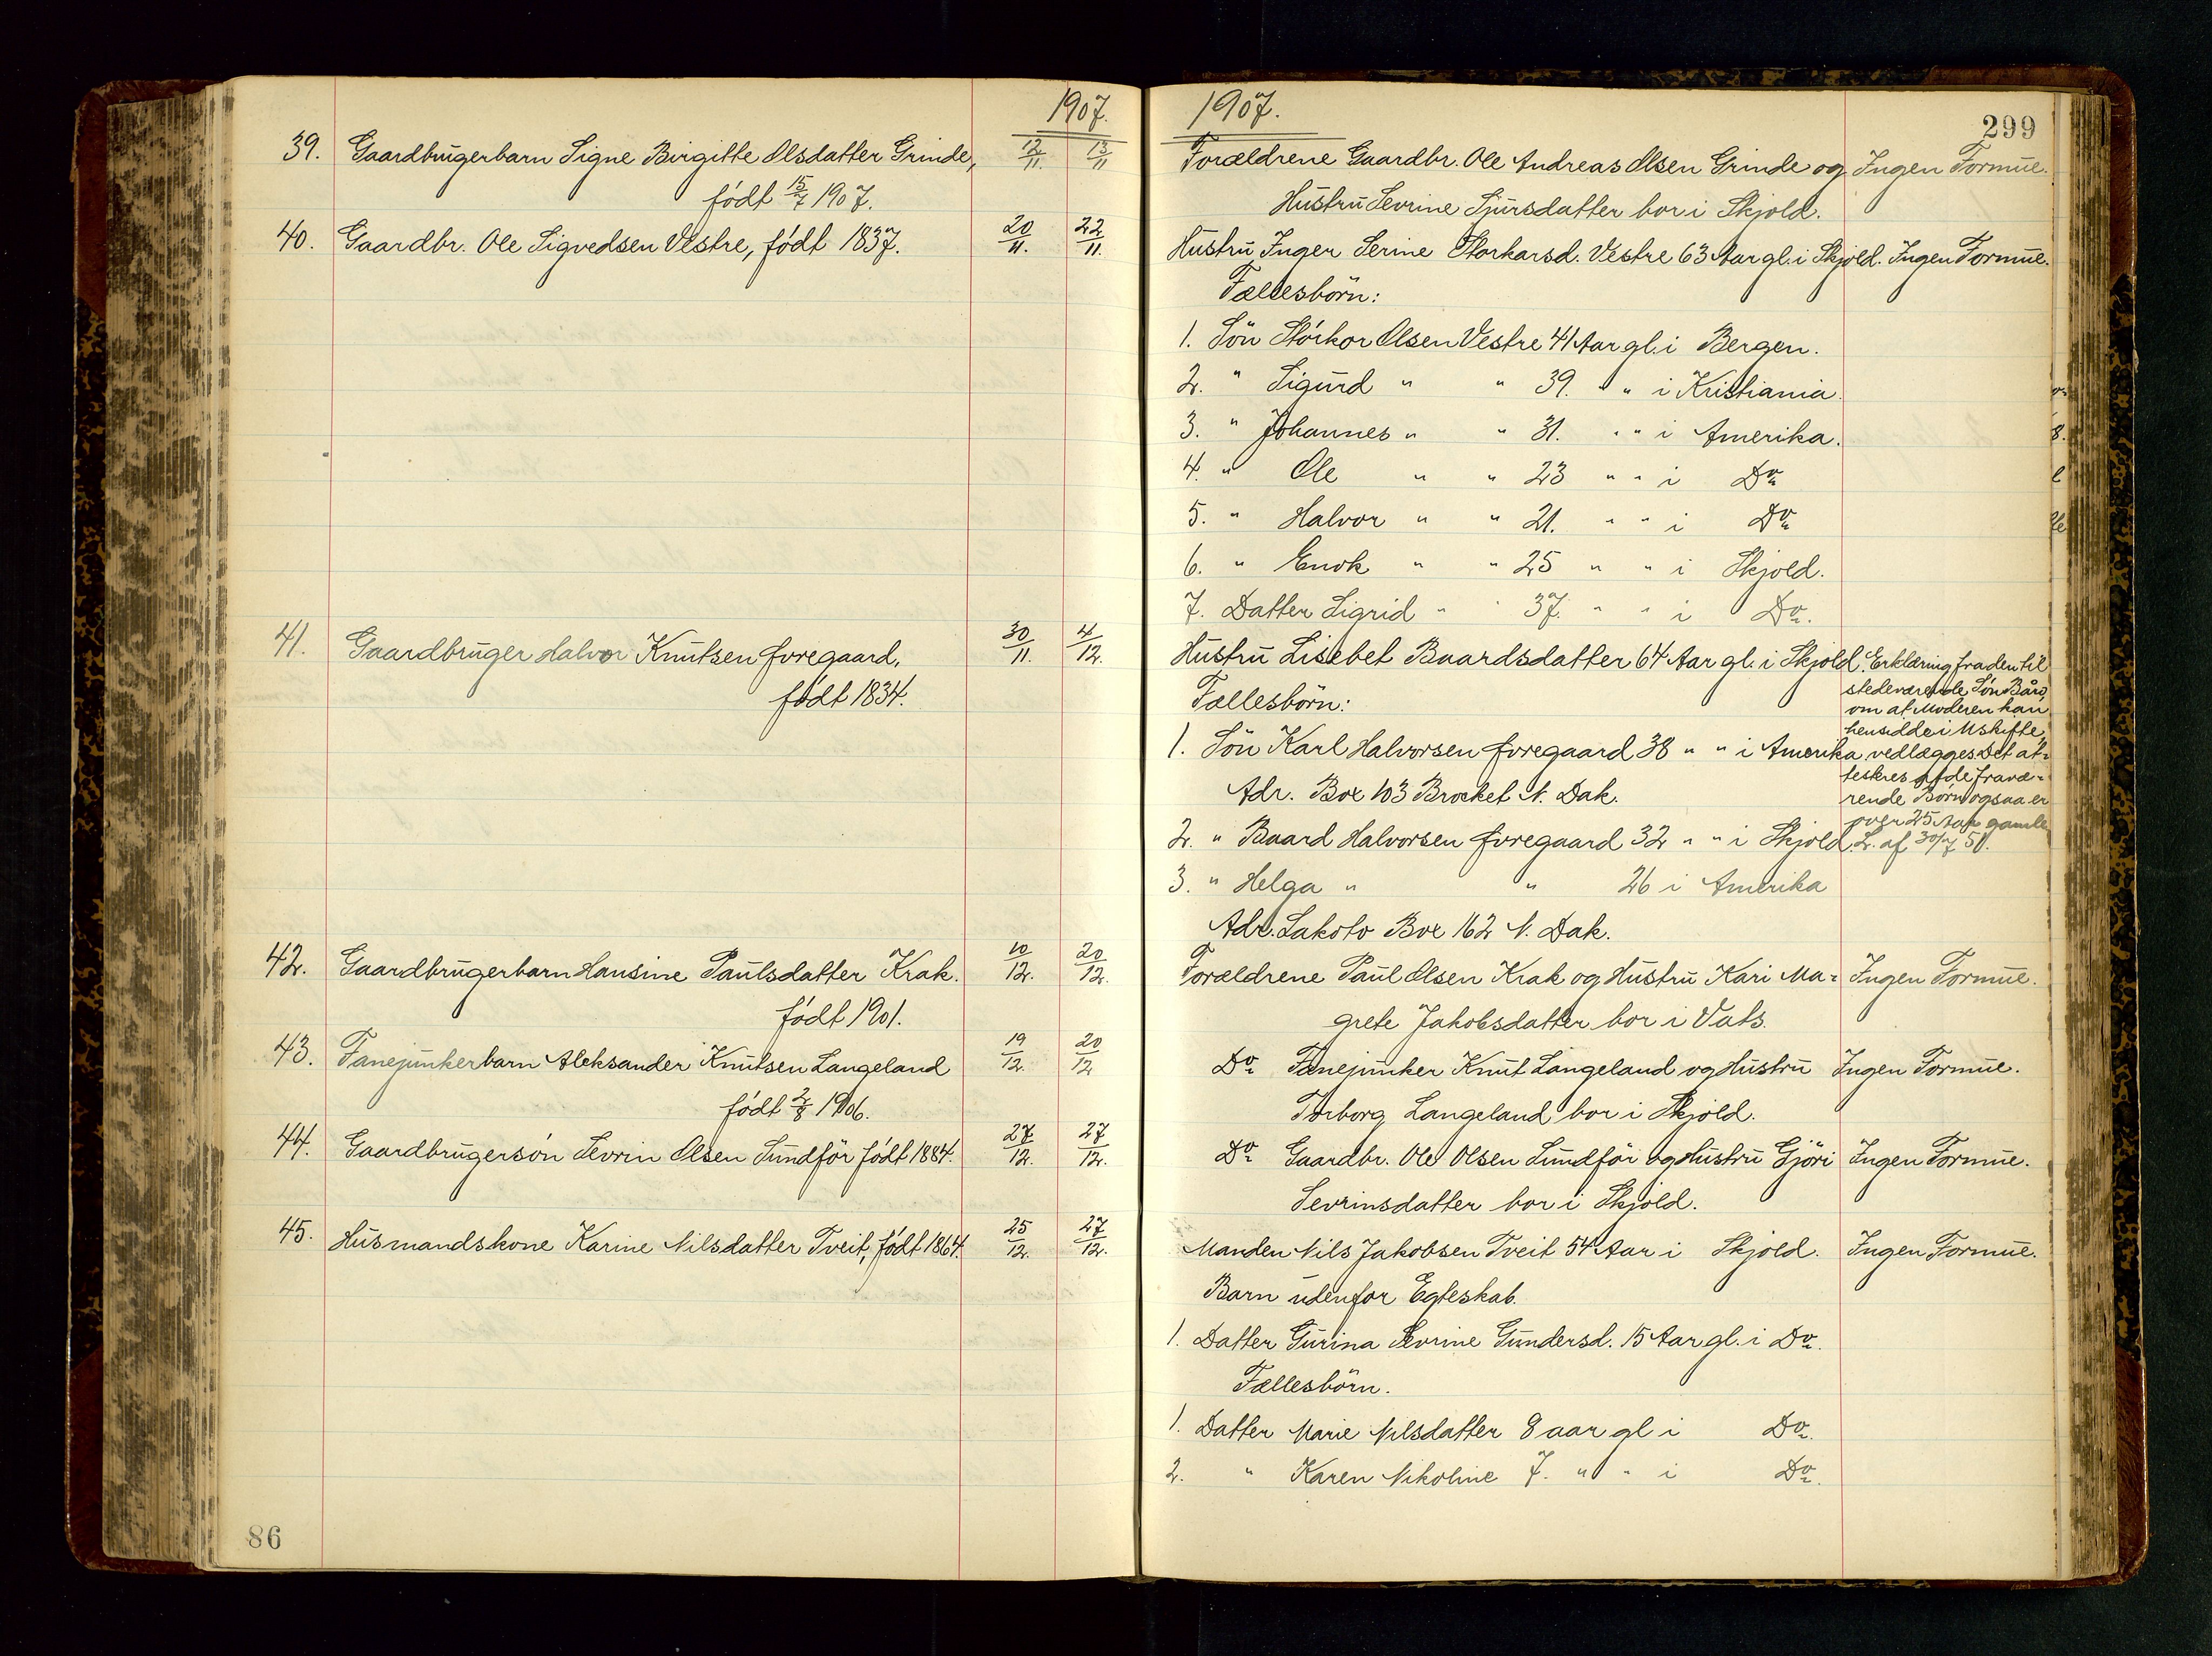 1907.
39. Gaardbrugerbarn Signe Birgitte Olsdatter Grinde, 12/11. 13/11
født 15/7 1907.
40. Gaardbr. Ole Sigvedsen Vestre, født 1837. 20/11. 22/11.
41. Gaardbruger Halvor Knutsen Øvregaard, 30/11. 4/12.
født 1834.
42. Gaardbrugerbarn Hansine Paulsdatter Krak. 10/12. 20/12.
født 1901.
43. Fanejunkerbarn Aleksander Knutsen Langeland 19/12. 20/12
født 2/8 1906.
44. Gaardbrugersön Sevrin Olsen Sundför født 1884. 27/12. 27/12.
45. Husmandskone Karine Nilsdatter Tveit, født 1864. 25/12. 27/12.
86
1907.
299
Forældrene Gaardbr. Ole Andreas Olsen Grinde og Ingen Formue.
Hustru Sevrine Sjursdatter bor i Skjold.
Hustru Inger Serine Storkarsd. Vestre 63 Aar gl. i Skjold. Ingen Formue.
Fællesbörn:
1. Sön Störkor Olsen Vestre 41 Aar gl. i Bergen.
2. " Sigurd " " 39. " " i Kristiania.
3. " Johannes " " 31. " " i Amerika.
4. " Ole " " 23 " " i Do
5. " Halvor " " 21. " " i Do
6. " Enok " " 25 " " i Skjold.
7. Datter Sigrid " " 37. " " i Do.
Hustru Lisebet Baardsdatter 64 Aar gl. i Skjold. Erklæring fra den til
stedeværende Sön Bård
Fællesbörn:
om at Moderen kan
hensidde i Uskifte
1. Sön Karl Halvorsen Øvregaard 38 " " i Amerika vedlægges. Det at-
testeres at de fravæ-
Adr. Box 103 Brocket N. Dak.
rende Börn ogsaa er
over 25 Aar gamle
2. " Baard Halvorsen Øvregaard 32 " " i Skjold. L. af 30/7 51.
3. " Helga " " 26 i Amerika
Adr. Lakoto Box 162 N. Dak.
Forældrene Paul Olsen Krak og Hustru Kari Ma- Ingen Formue.
grete Jakobsdatter bor i Vats.
Do Fanejunker Knut Langeland og Hustru Ingen Formue.
Torborg Langeland bor i Skjold.
Do Gaardbr. Ole Olsen Sundför og Hustru Gjöri Ingen Formue.
Sevrinsdatter bor i Skjold.
Manden Nils Jakobsen Tveit 54 Aar i Skjold. Ingen Formue.
Barn udenfor Egteskab.
1. Datter Gurina Sevrine Gundersd. 15 Aar gl. i Do.
Fællesbörn.
1. Datter Marie Nilsdatter 8 aar gl i Do.
2. " Karen Nikoline 7. " " i Do.